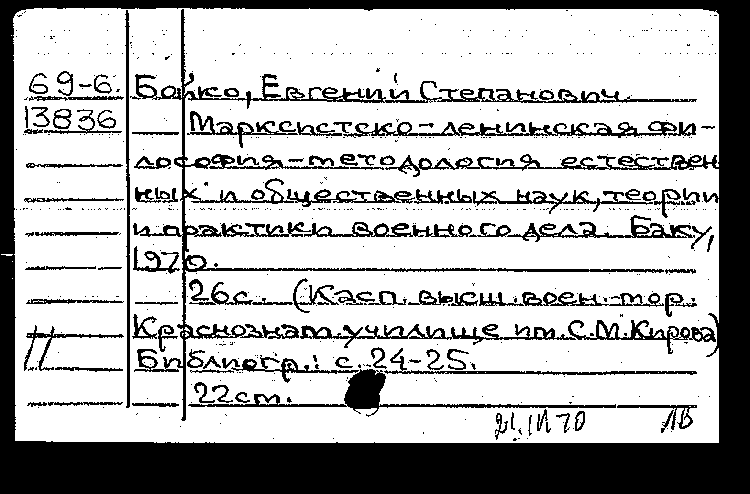 69-6. Бойко, Евгений Степанович
13836 Марксистско-ленинская фи-
лософия-методология естествен
ных и общественных наук, теории
и практики военного дела. Баку,
1970.
26с. (Касп. высш. воен.-мор.
Краснознам. училище им. С.М.Кирова)
Библиогр.: с. 24-25.
22см.